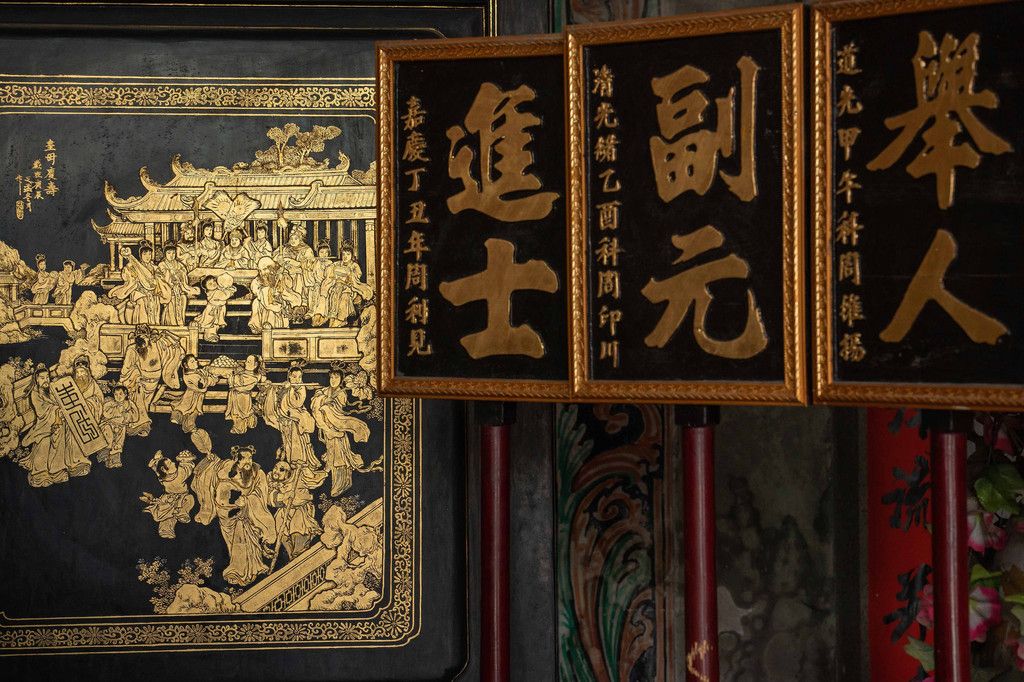 舉人
道光甲午科周維揚
副元
清光緒乙酉科周印川
進士
嘉慶丁丑年周利見
流